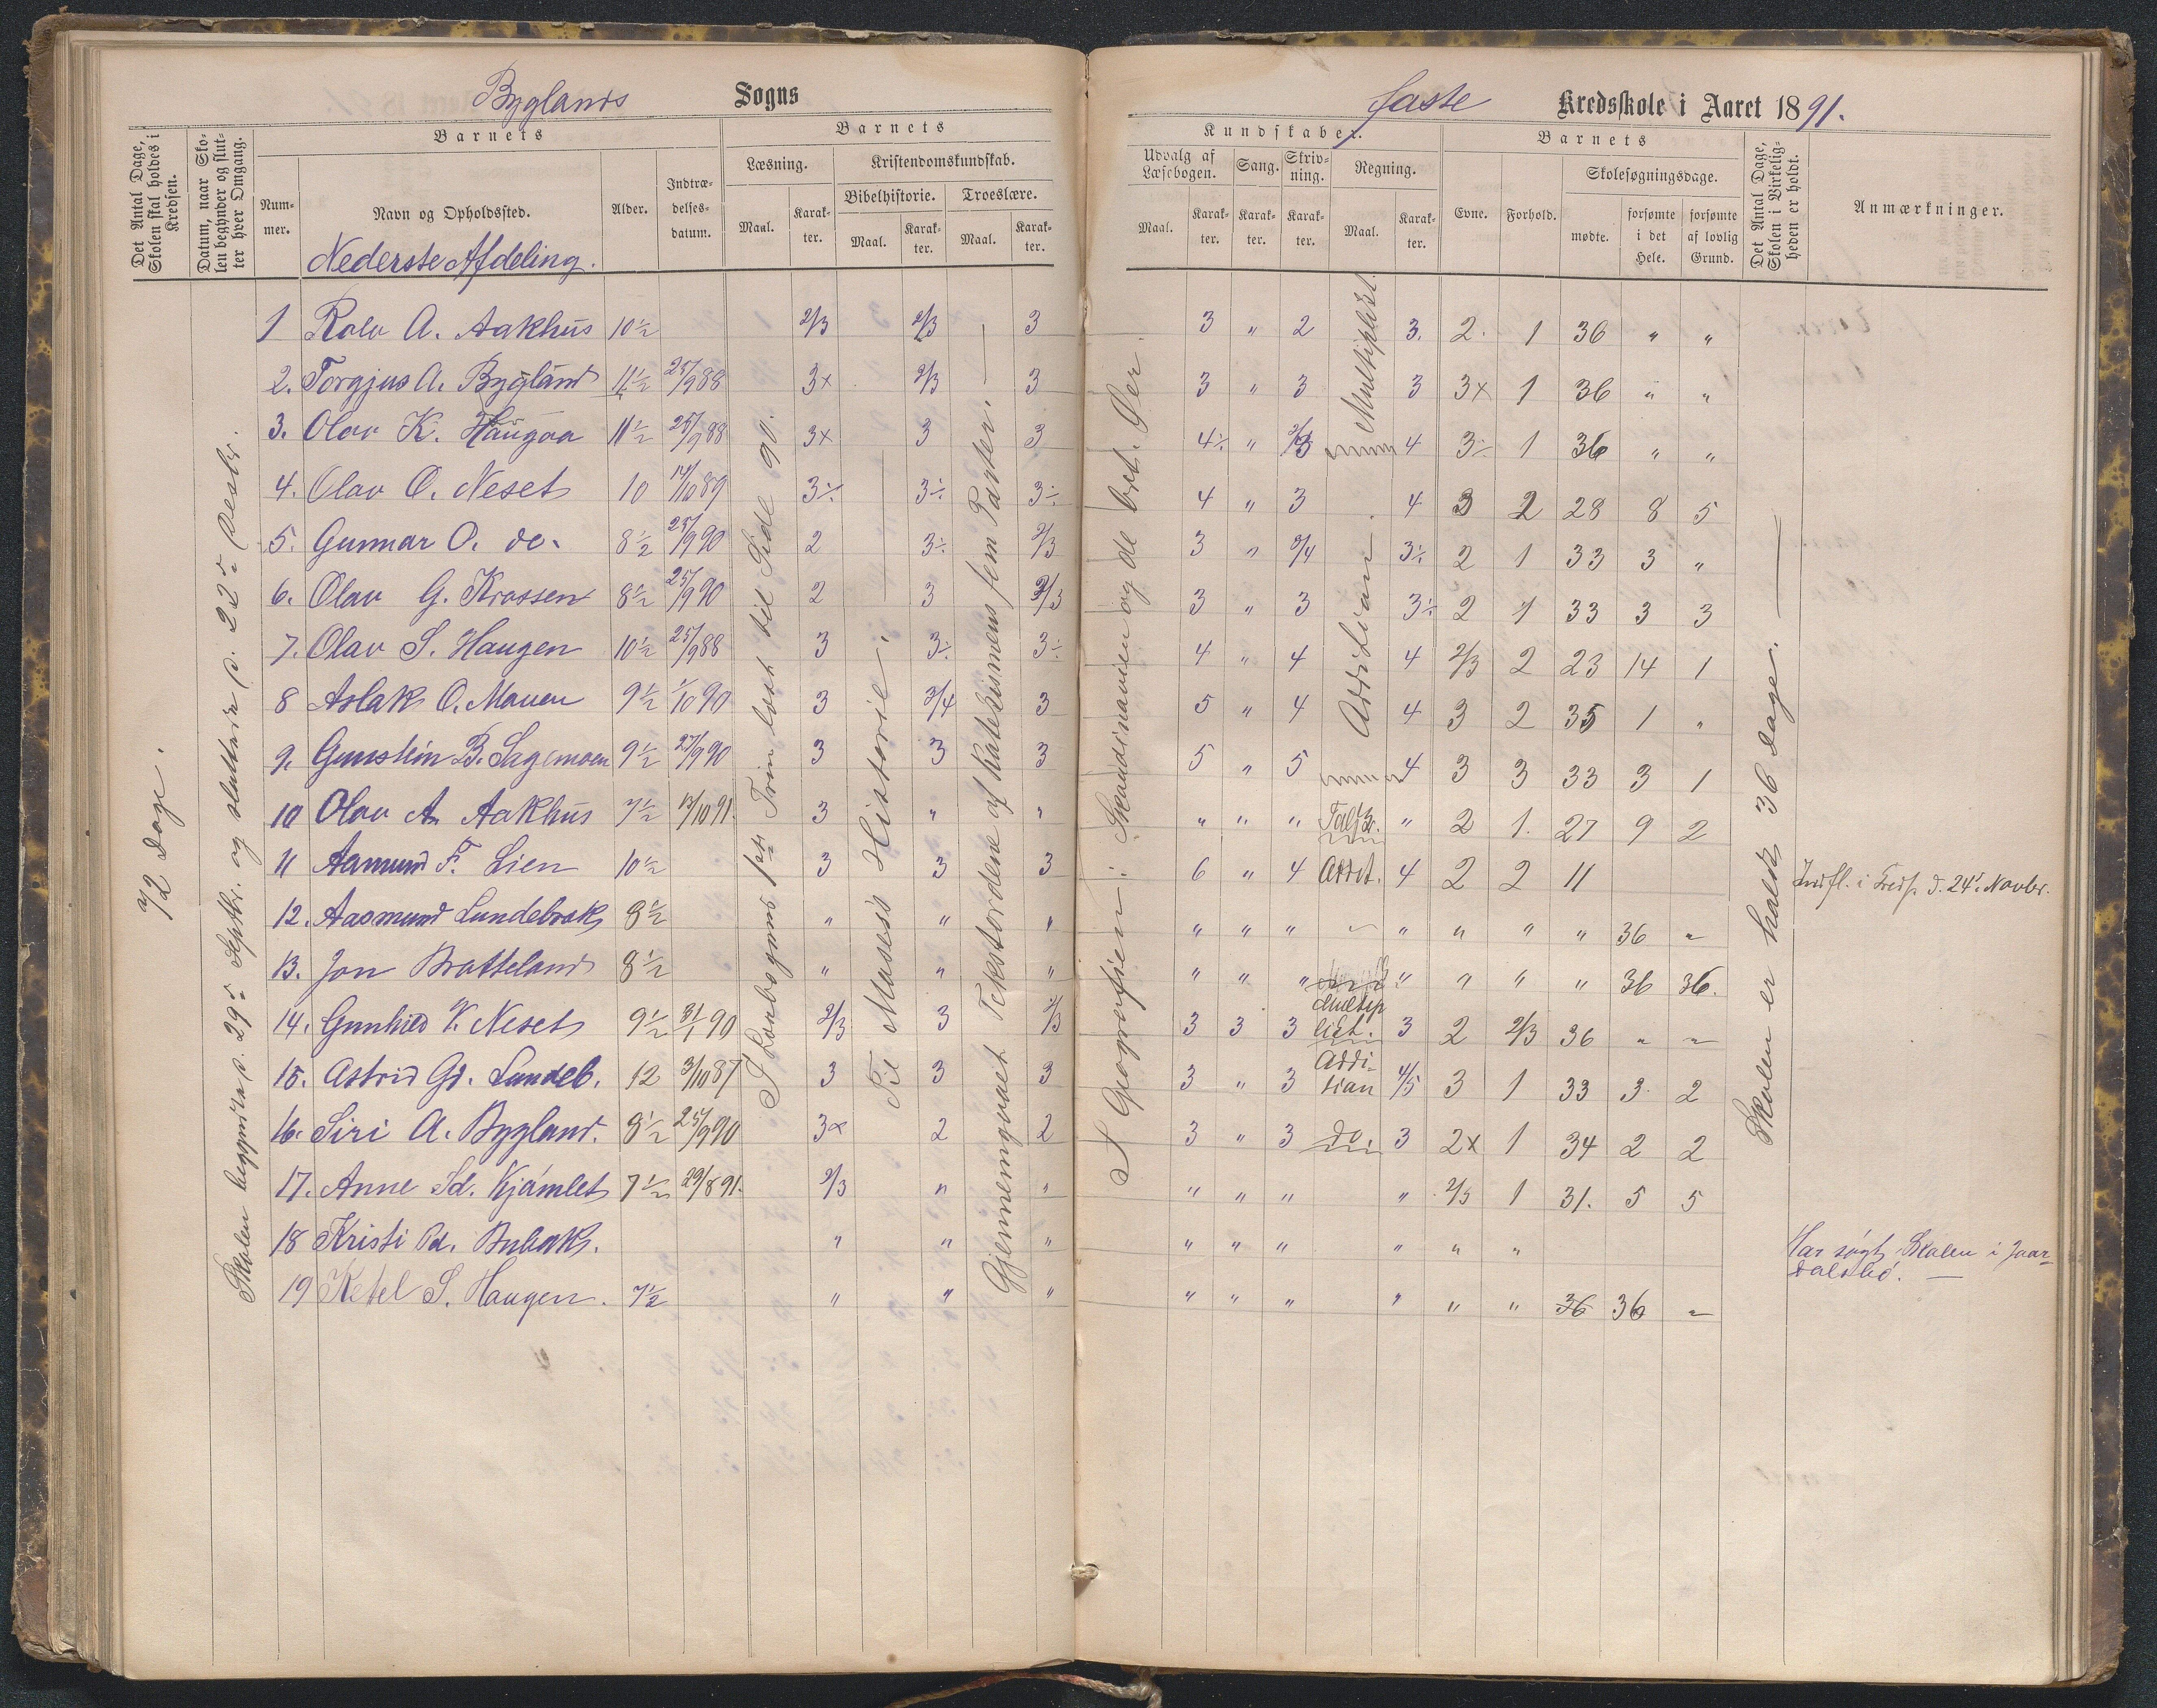 Byglands Sogns
faste Kredsskole i Aaret 1891.
Det Antal Dage, Skolen skal holdes i Kredsen.
Datum, naar Skolen begynder og slutter hver Omgang.
Barnets
Nummer.
Navn og Opholdssted.
Alder.
Indtrædelsesdatum.
Barnets
Læsning.
Maal.
Karakter.
Kristendomskundskab.
Bibelhistorie.
Maal.
Karakter.
Troeslære.
Maal.
Karakter.
Kundskaber.
Udvalg af Læsebogen.
Maal.
Karakter.
Sang.
Karakter.
Skrivning.
Karakter.
Regning.
Maal.
Karakter.
Barnets
Evne.
Forhold.
Skolesøgningsdage.
mødte.
forsømte i det Hele.
forsømte af lovlig Grund.
Det Antal Dage, Skolen i Virkeligheden er holdt.
Anmærkninger.
Nederste Afdeling.
72 Dage.
Skolen begyndte d. 29de Septbr. og sluttede d. 22de Decbr.
I Læsebogens 1ste Trin læst til Side 90.
Til Moses's Historie.
Gjennemgaaet Tekstordene af Katekismens fem Parter.
I Geografien: Skandinavien og de brit. Øer.
Multiplikt.
Addition
Skolen er holdt 36 Dage.
1 Rolv A. Aakhus 10½ 2/3 2/3 3 3 " 2 3. 2. 1 36 " "
2. Torgjus A. Bygland 11½ 25/9 88 3x 2/3 3 3 " 3 3 3x 1 36 " "
3. Olav K. Haugaa 11½ 25/9 88 3x 3 3 4÷ " 2/3 4 3÷ 1 36 " "
4. Olav O. Neset 10 14/10 89 3÷ 3÷ 3÷ 4 " 3 4 3 2 28 8 5
5. Gunnar O. do. 8½ 25/9 90 2 3÷ 2/3 3 " 3/4 3÷ 2 1 33 3 "
6. Olav G. Krossen 8½ 25/9 90 2 3 2/3 3 " 3 3÷ 2 1 33 3 3
7. Olav S. Haugen 10½ 25/9 88 3 3÷ 3÷ 4 " 4 4 2/3 2 23 14 1
8 Aslak O. Mauen 9½ 1/10 90 3 3/4 3 5 " 4 4 3 2 35 1 "
9. Gunstein B. Sagemoen 9½ 27/9 90 3 3 3 5 " 5 4 3 3 33 3 1
10 Olav A. Aakhus 7½ 13/10 91. 3 " " " " " " 2 1. 27 9 2
11 Aamund F. Lien 10½ 3 3 3 6 " 4 Addit. 4 2 2 11 Indfl. i Kreds. d. 24' Novbr.
12. Aasmund Lundebrok 8½ " " " " " " " " " " 36 "
13. Jon Bratteland 8½ " " " " " " " " " " 36 36.
14. Gunhild K. Neset 9½ 31/1 90 2/3 3 2/3 3 3 3 Multiplict. 3 2 2/3 36 " "
15. Astrid Gd. Lundeb. 12 3/10 87 3 3 3 3 " 3 Addition 4/5 3 1 33 3 2
16. Siri A. Bygland. 8½ 25/9 90 3x 2 2 3 " 3 do. 3 2x 1 34 2 2
17. Anne Sd. Kjámlet 7½ 29/8 91. 2/3 " " " " " " 2/3 1 31. 5 5
18 Kristi Pd. " " " " " " " " " Har søgt Skolen i Jaardalsbø.
19 Ketel S. Haugen. 7½ " " " " " " " " " 36 36 "